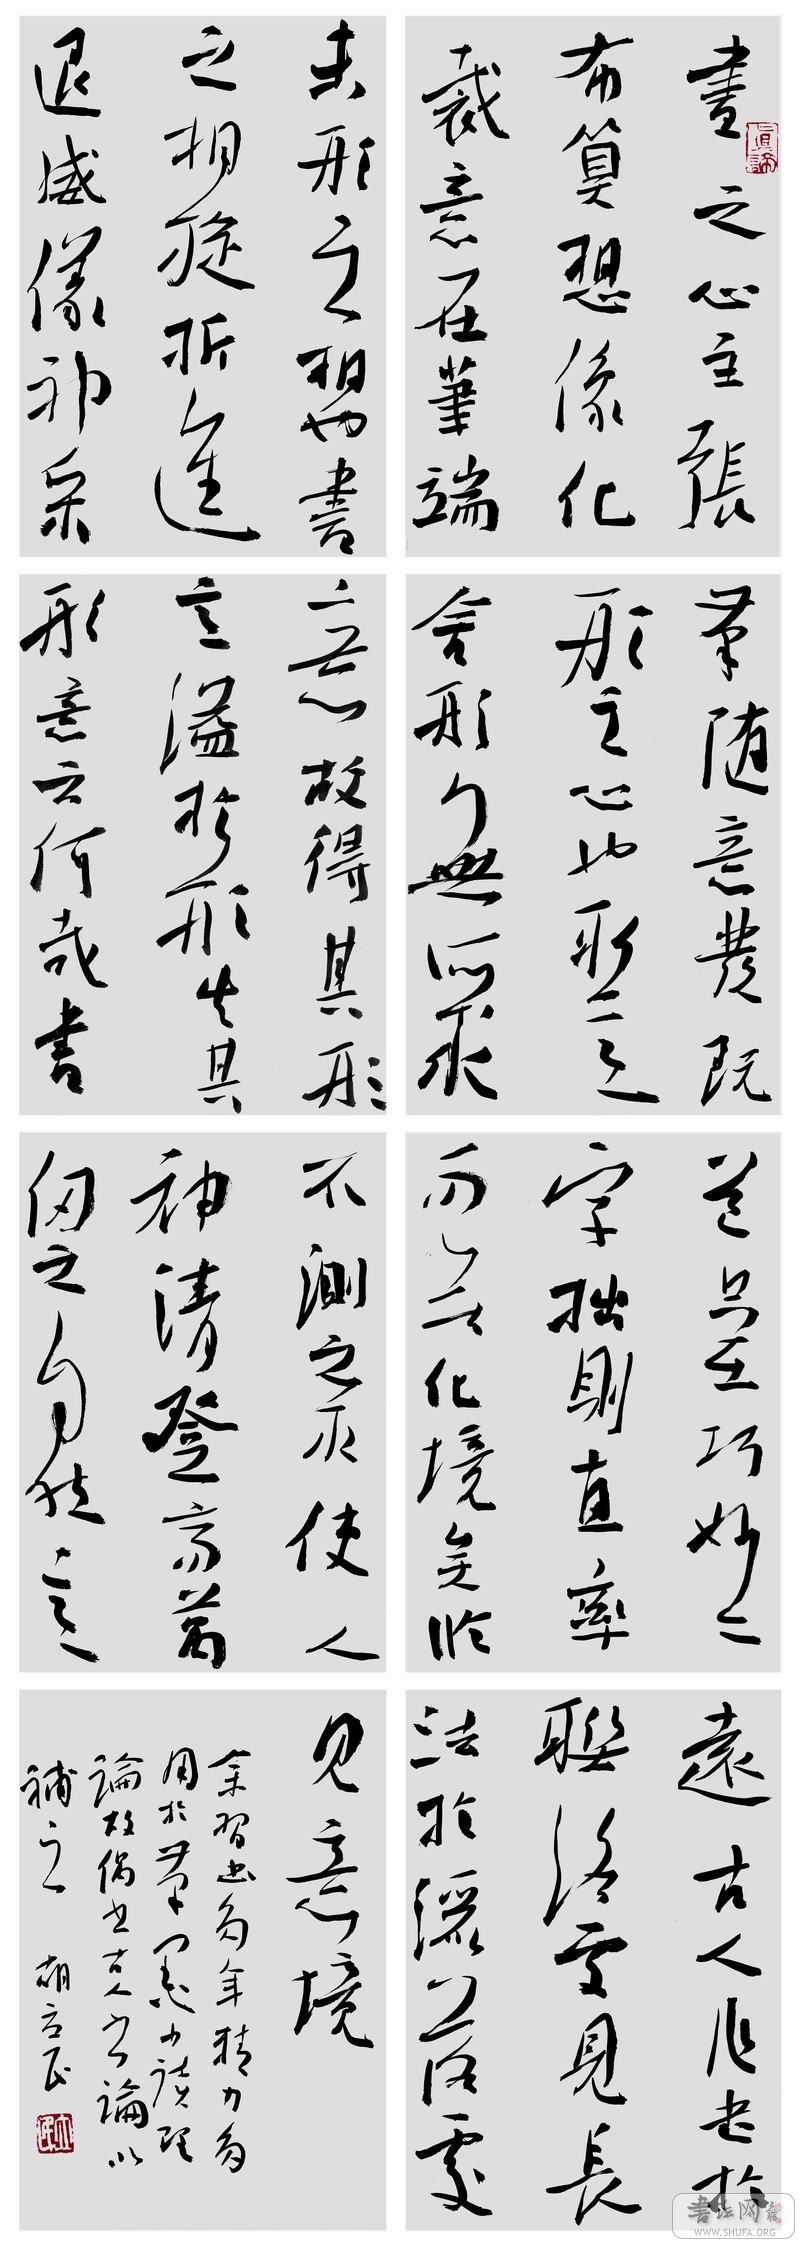 書之心主張
布算想像化
裁意在筆端
未形之相也書
之相旋折進
退威儀神采
筆隨意發既
形之心也形意
舍形何無所求
意故得其形
意溢於形失其
形意云何哉書
道只在巧妙二
字拙則直率
而無化境矣臨
不測之水使人
神清登高萬
仞之自然意
遠古人作書於
聯絡處見長
法於灑落處
見意境
余習書多年精力多
用於筆墨少讀理
論故偶書古人書論以
補之 胡立民
書法网
WWW.SHUFA.ORG